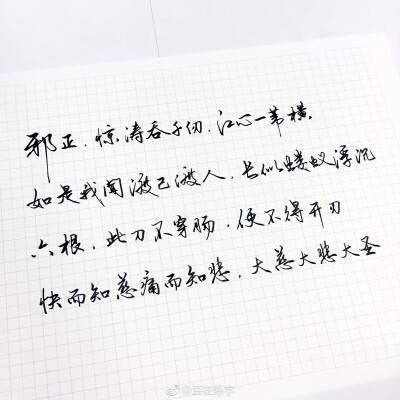 邪正.惊涛吞千仞.江心一苇横.
如是我闻渡己渡人.长似蝼蚁浮沉
六根.此刀不穿肠.便不得开刃
快而知慈痛而知悲.大慈大悲大圣